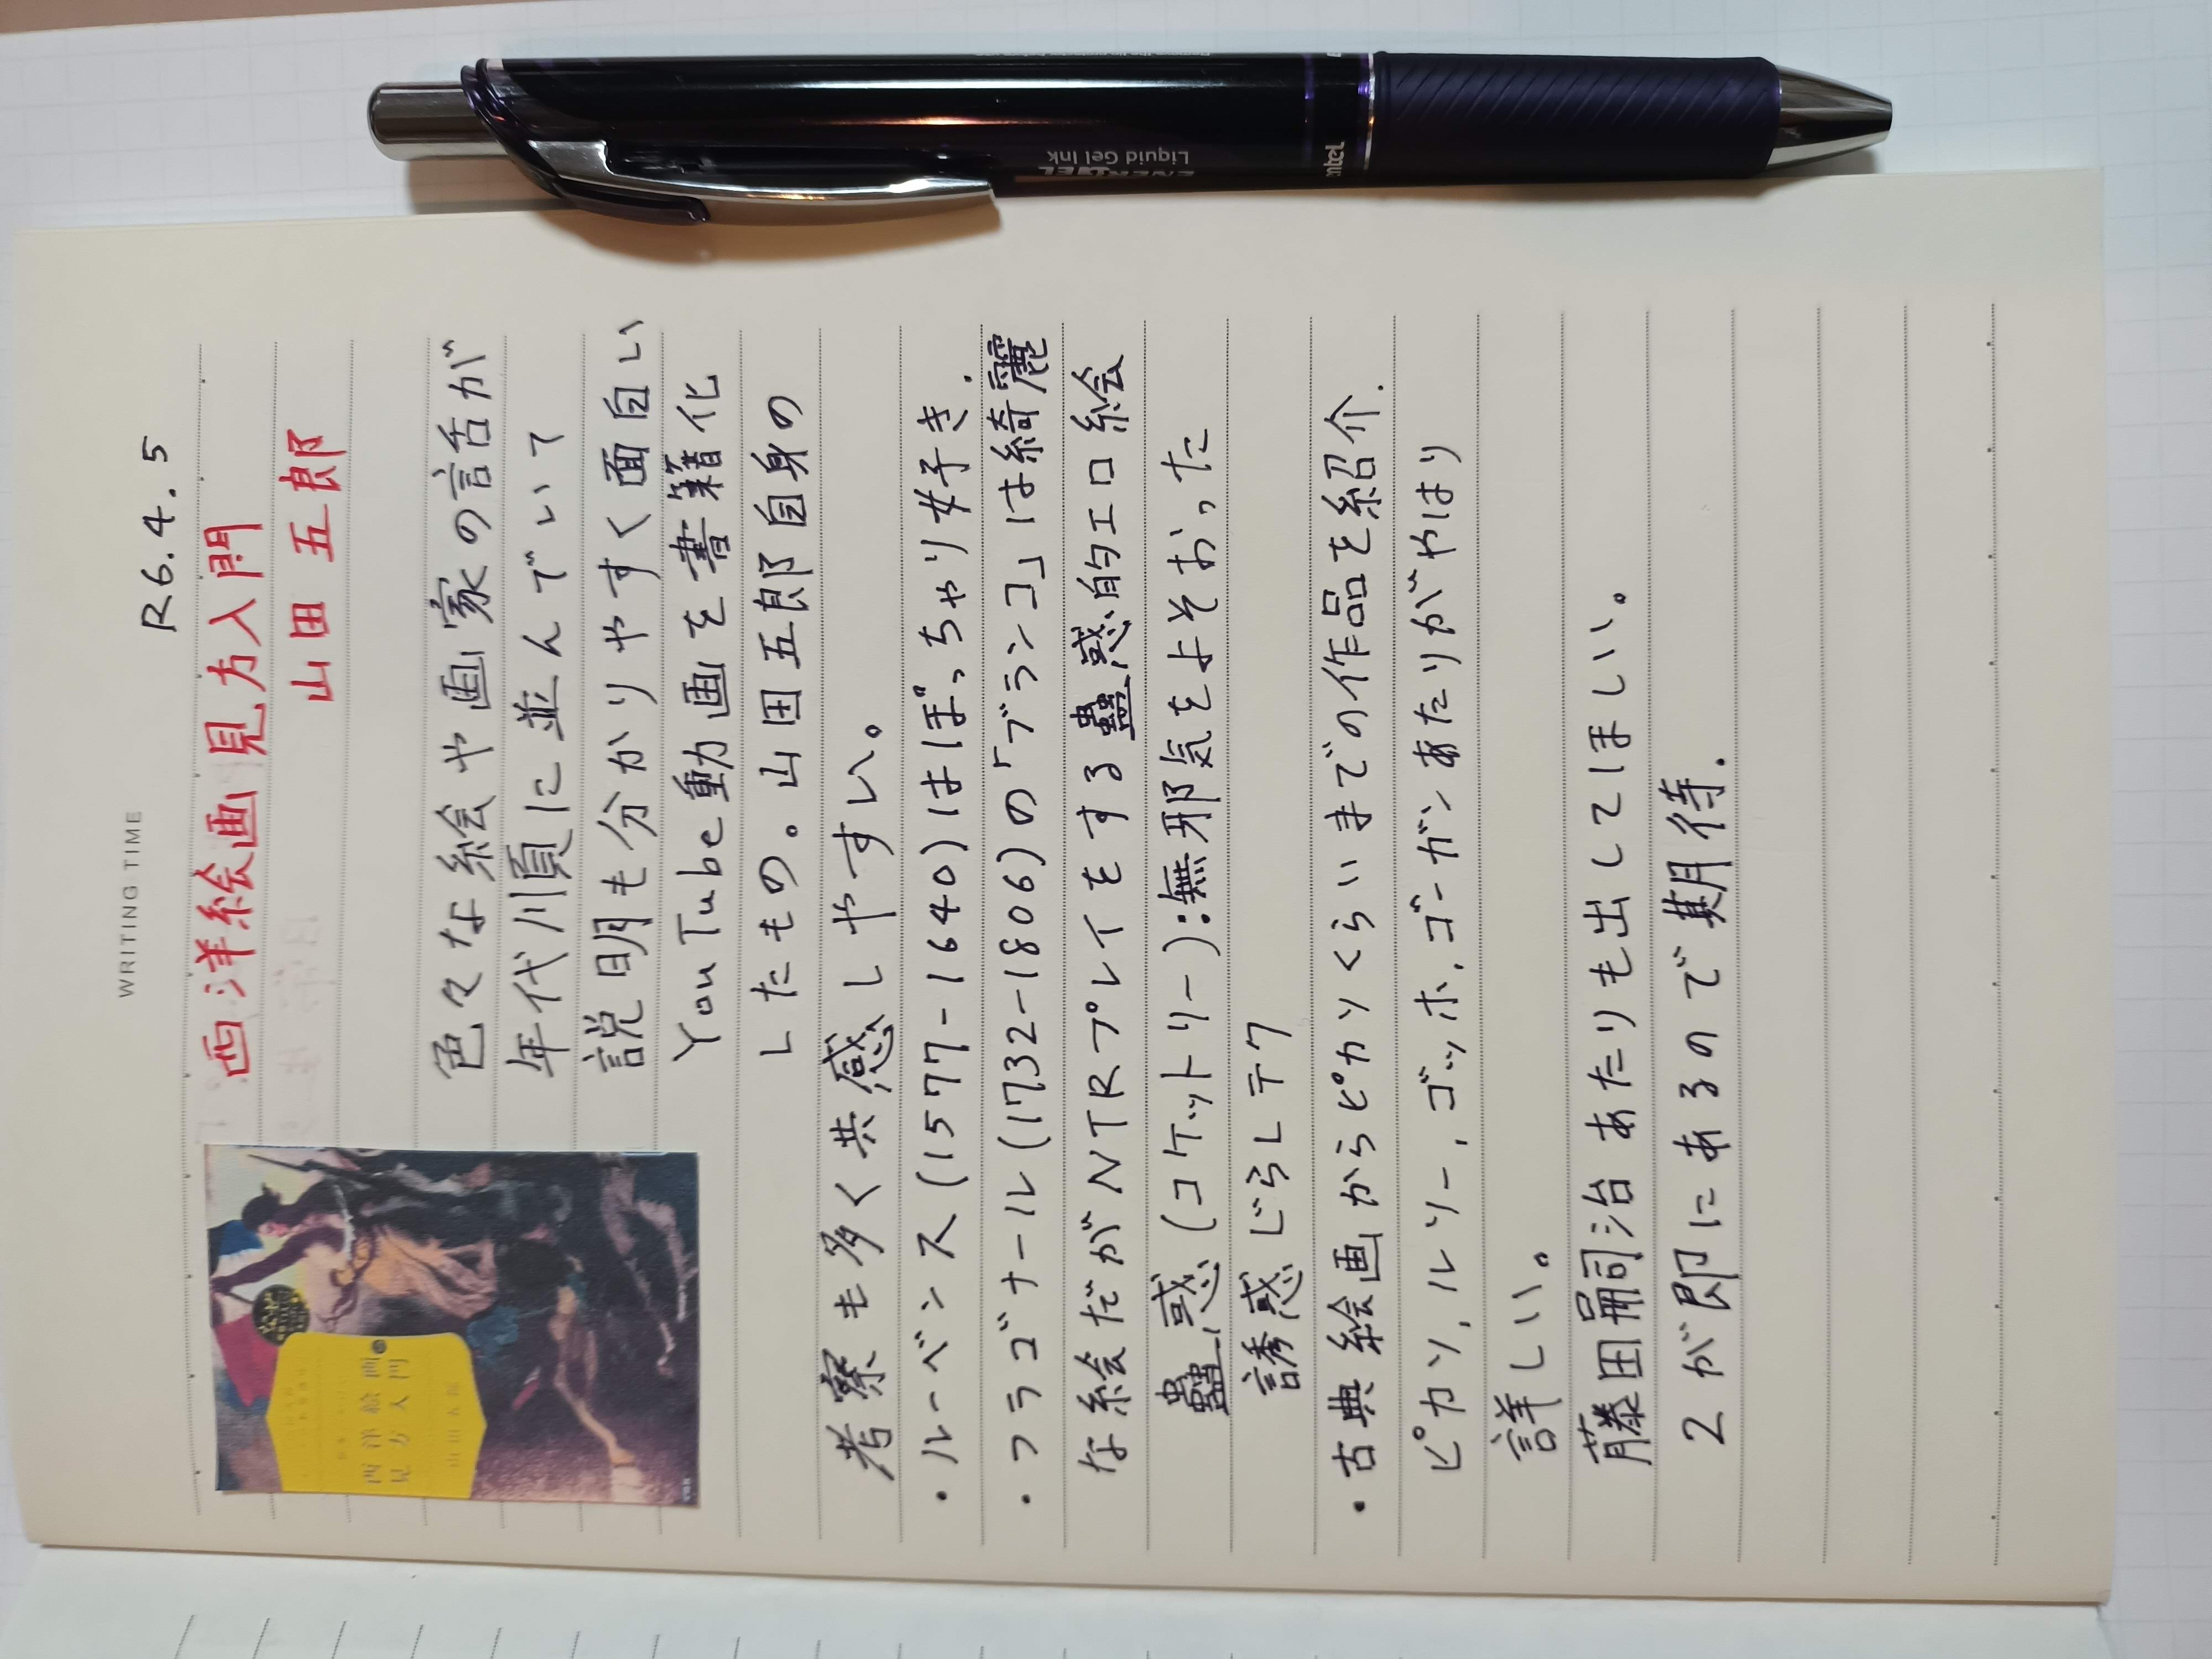 WRITING TIME
R6.4.5
西洋絵画見方入門
山田五郎
西洋絵画
見方入門
山田五郎
色々な絵や画家の話が
年代順に並んでいて
説明も分かりやすく面白い
YouTube動画を書籍化
したもの。山田五郎自身の
考察も多く共感しやすい。
・ルーベンス(1577-1640)はぽっちゃり好き.
・フラゴナール(1732-1806)の「ブランコ」は綺麗
な絵だがNTRプレイをする蠱惑的エロ絵
蠱惑(コケットリー):無邪気をよそおった
誘惑じらしテク
・古典絵画からピカソくらいまでの作品を紹介.
ピカソ,ルソー,ゴッホ,ゴーガンあたりがやはり
詳しい。
藤田嗣治あたりも出してほしい。
2が即にあるので期待.
Liquid Gel Ink